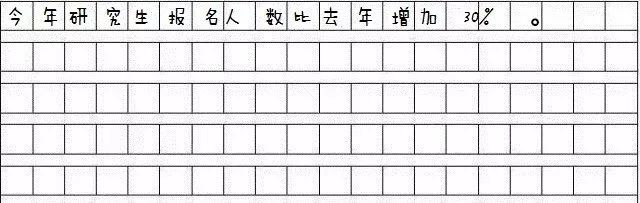 今年研究生报名人数比去年增加30%。